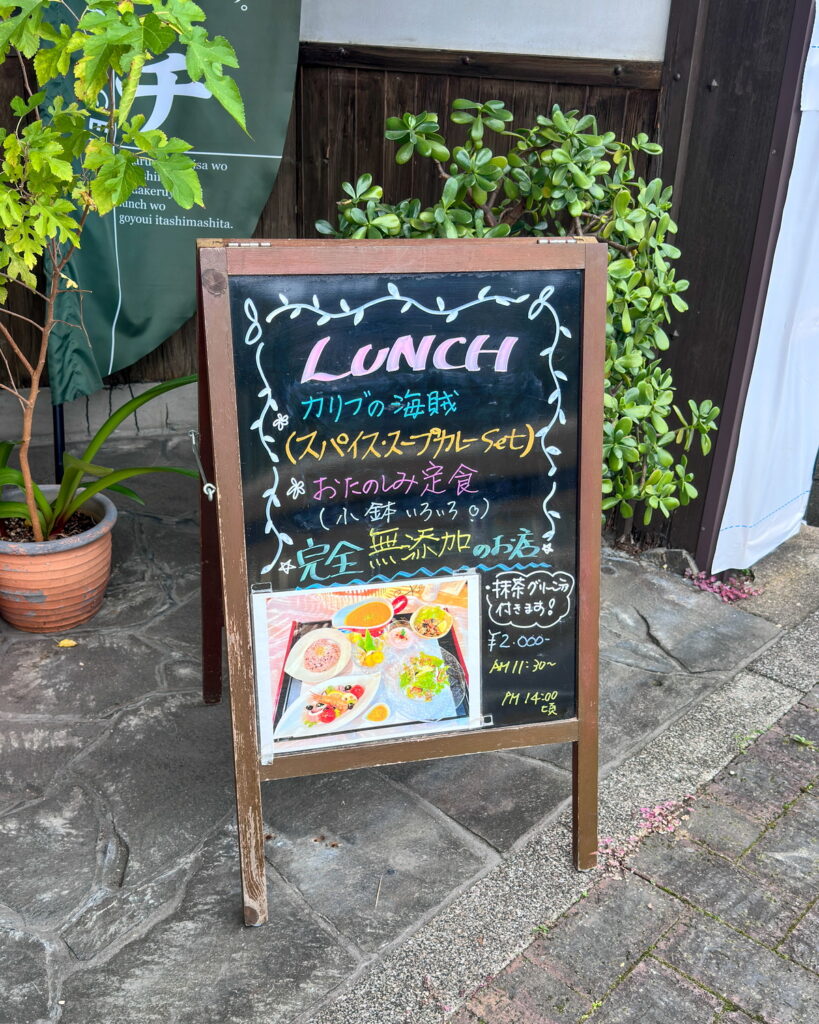 チ
lunch wo
goyoui itashimashita.
LUNCH
カリブの海賊
(スパイス・スープカレーSet)
おたのしみ定食
(小鉢いろいろ)
完全無添加のお店
・抹茶グリーンティ
付きます!
¥2.000-
AM 11:30~
PM 14:00
頃